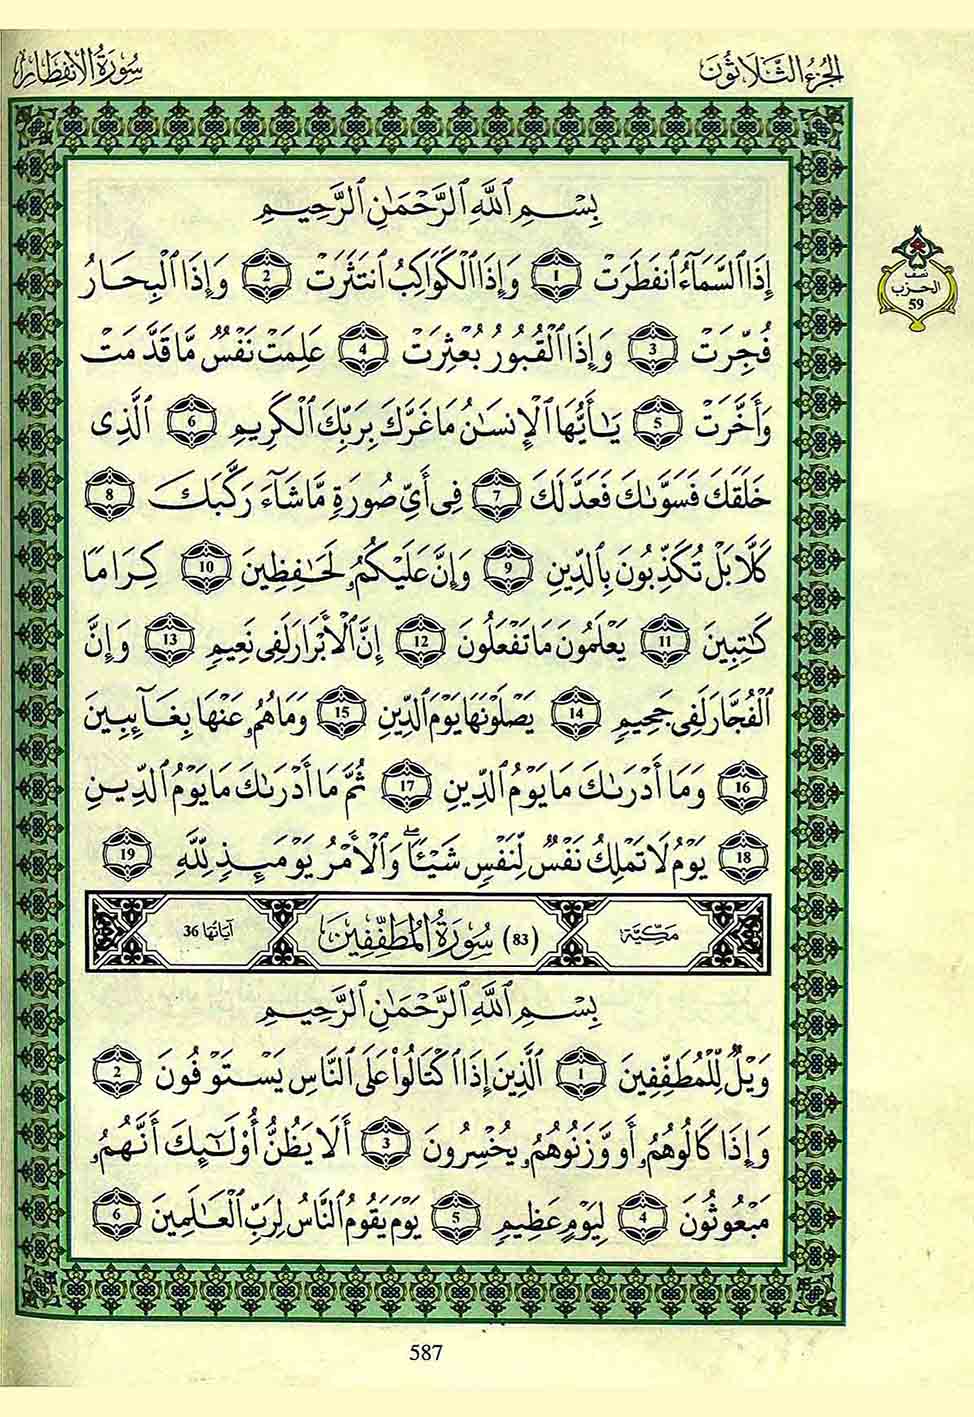 الجُزءُ الثَّلَاثُونَ
سُورَةُ الانفِطَار
نصف
الحزب
59
بِسْمِ ٱللَّهِ ٱلرَّحْمَٰنِ ٱلرَّحِيمِ
إِذَا ٱلسَّمَآءُ ٱنفَطَرَتْ 1 وَإِذَا ٱلْكَوَاكِبُ ٱنتَثَرَتْ 2 وَإِذَا ٱلْبِحَارُ
فُجِّرَتْ 3 وَإِذَا ٱلْقُبُورُ بُعْثِرَتْ 4 عَلِمَتْ نَفْسٌ مَّا قَدَّمَتْ
وَأَخَّرَتْ 5 يَٰٓأَيُّهَا ٱلْإِنسَٰنُ مَا غَرَّكَ بِرَبِّكَ ٱلْكَرِيمِ 6 ٱلَّذِى
خَلَقَكَ فَسَوَّىٰكَ فَعَدَّلَكَ 7 فِى أَىِّ صُورَةٍ مَّا شَآءَ رَكَّبَكَ 8
كَلَّا بَلْ تُكَذِّبُونَ بِٱلدِّينِ 9 وَإِنَّ عَلَيْكُمُۥ لَحَٰفِظِينَ 10 كِرَامًا
كَٰتِبِينَ 11 يَعْلَمُونَ مَا تَفْعَلُونَ 12 إِنَّ ٱلْأَبْرَارَ لَفِى نَعِيمٍ 13 وَإِنَّ
ٱلْفُجَّارَ لَفِى جَحِيمٍ 14 يَصْلَوْنَهَا يَوْمَ ٱلدِّينِ 15 وَمَا هُمُۥ عَنْهَا بِغَآئِبِينَ
16 وَمَا أَدْرَىٰكَ مَا يَوْمُ ٱلدِّينِ 17 ثُمَّ مَا أَدْرَىٰكَ مَا يَوْمُ ٱلدِّينِ
18 يَوْمُ لَا تَمْلِكُ نَفْسٌ لِّنَفْسٍ شَيْـًٔا ۖ وَٱلْأَمْرُ يَوْمَئِذٍ لِّلَّهِ 19
مَكِّيَّة (83) سُورَةُ المُطَفِّفِين آيَاتُهَا 36
بِسْمِ ٱللَّهِ ٱلرَّحْمَٰنِ ٱلرَّحِيمِ
وَيْلٌ لِّلْمُطَفِّفِينَ 1 ٱلَّذِينَ إِذَا ٱكْتَالُوا۟ عَلَى ٱلنَّاسِ يَسْتَوْفُونَ 2
وَإِذَا كَالُوهُمُۥ أَو وَّزَنُوهُمُۥ يُخْسِرُونَ 3 أَلَا يَظُنُّ أُو۟لَٰٓئِكَ أَنَّهُمُۥ
مَبْعُوثُونَ 4 لِيَوْمٍ عَظِيمٍ 5 يَوْمَ يَقُومُ ٱلنَّاسُ لِرَبِّ ٱلْعَٰلَمِينَ 6
587